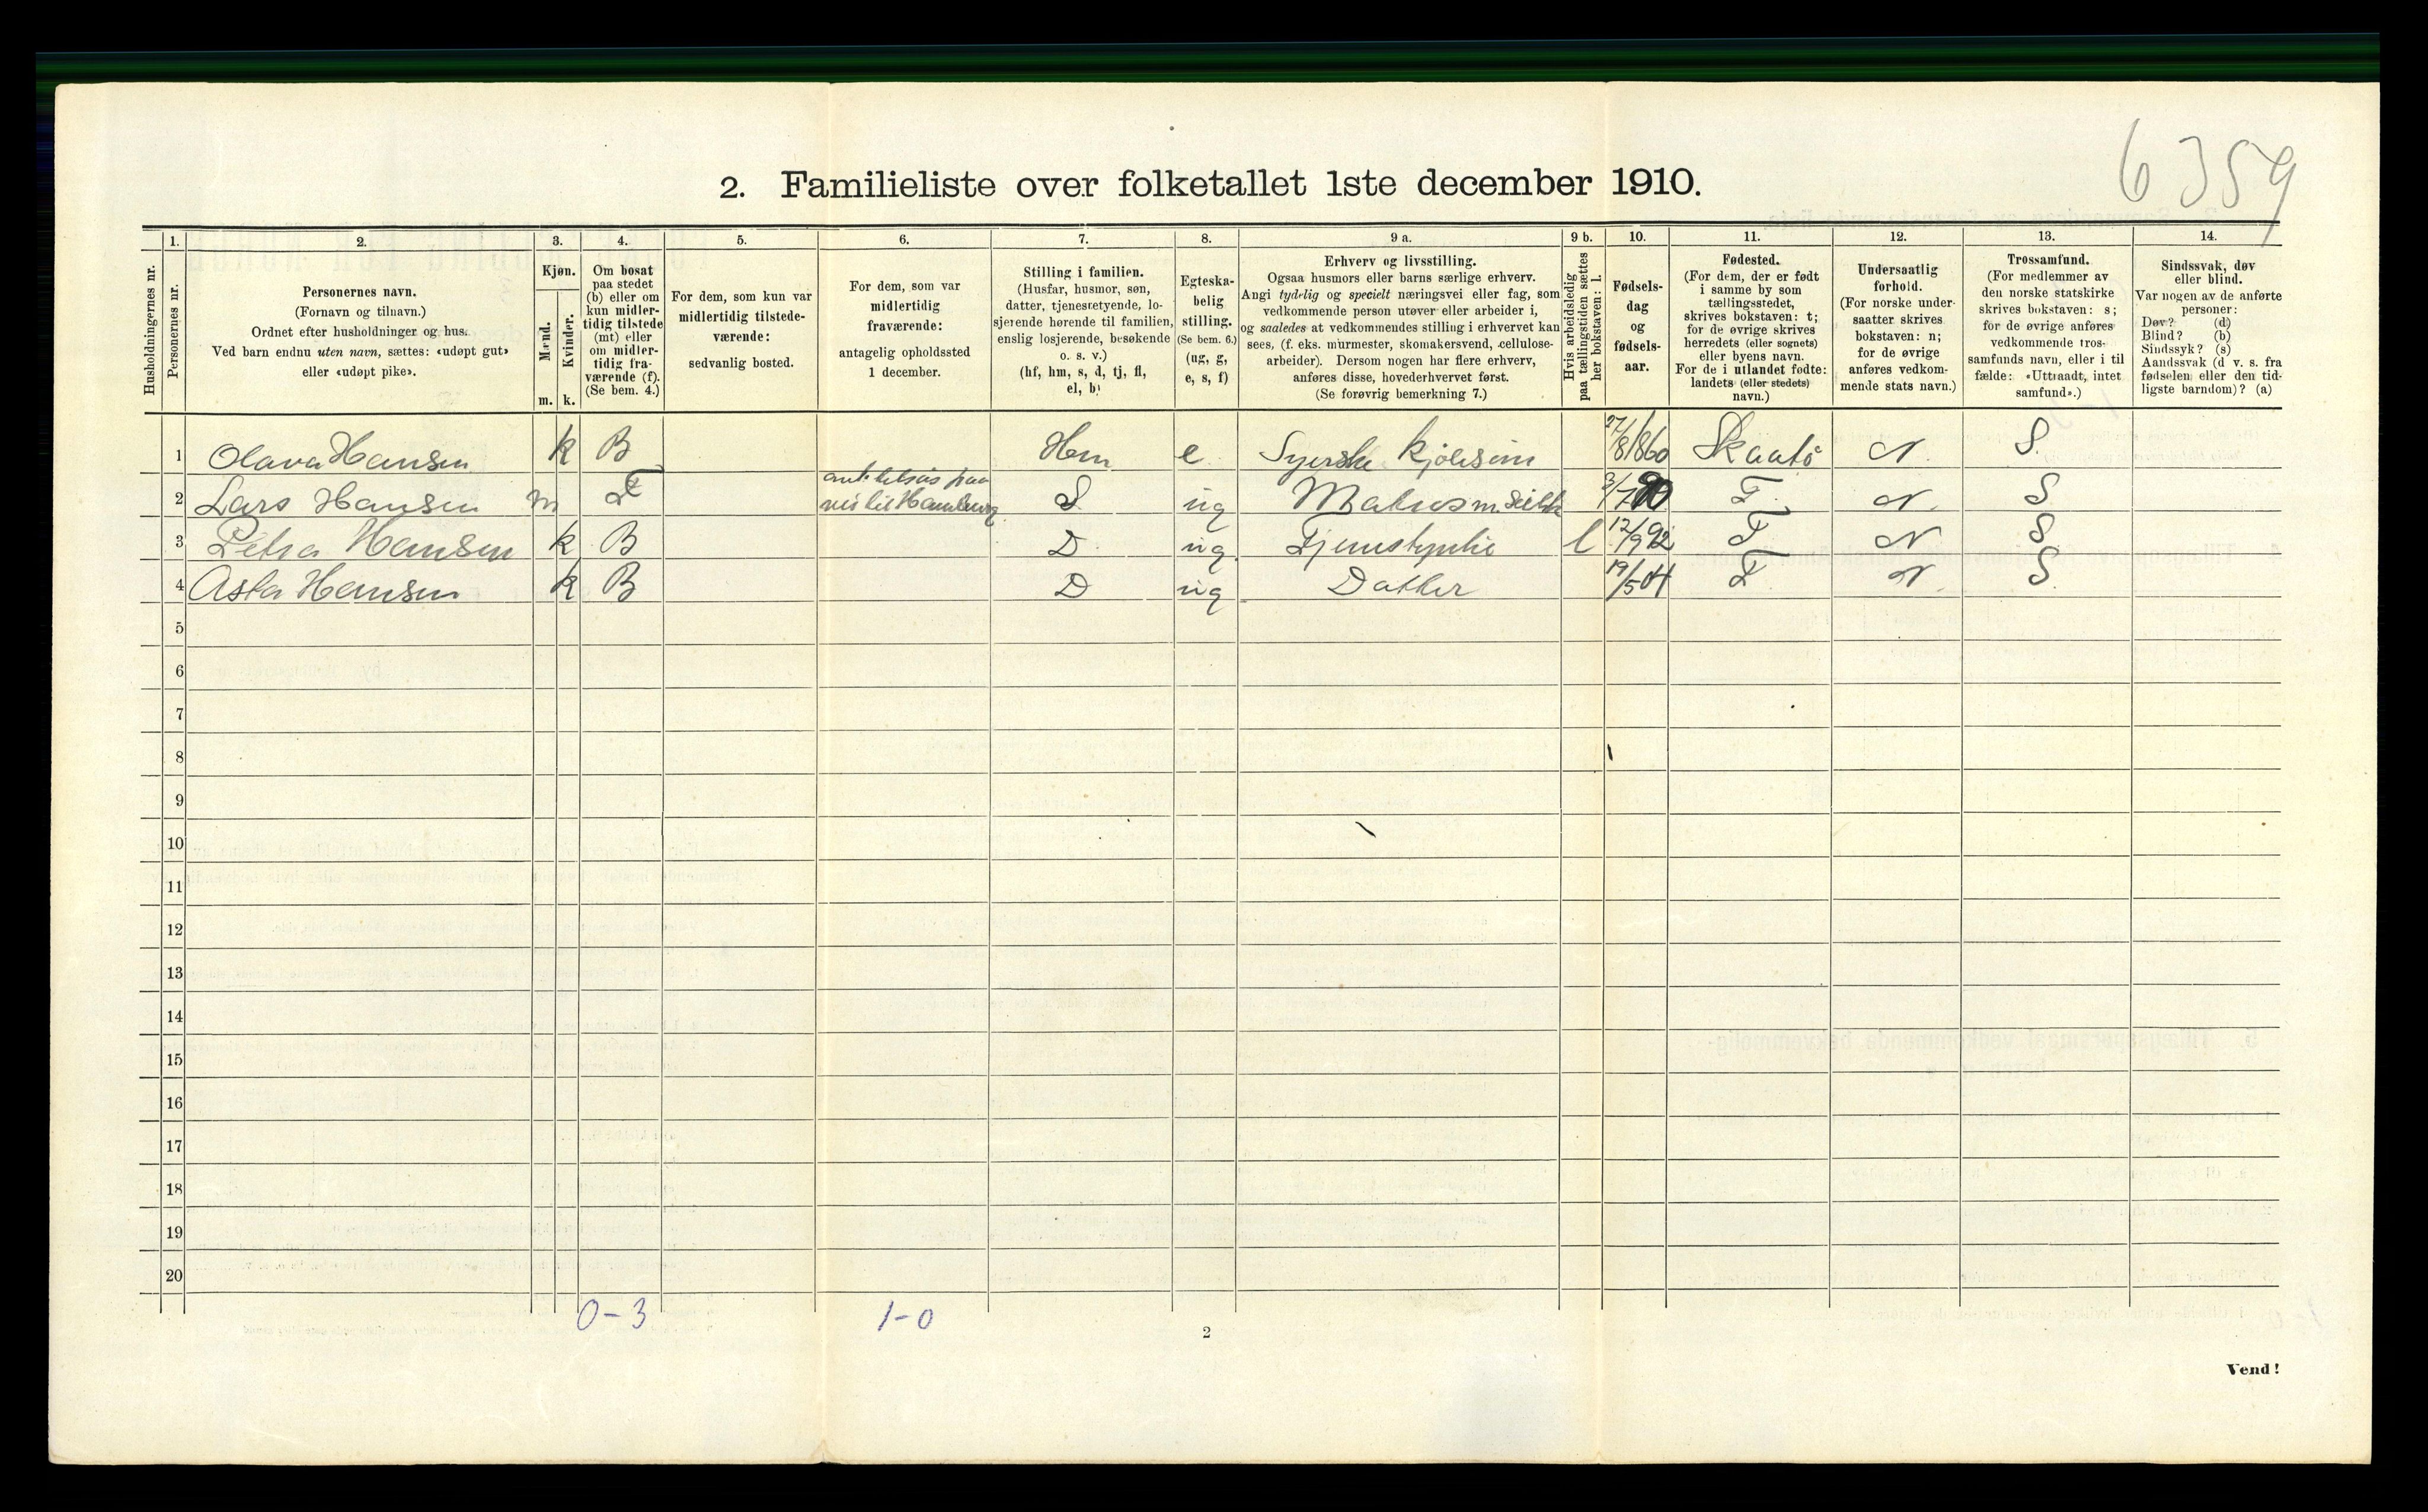 6359
2. Familieliste over folketallet 1ste december 1910.
Husholdningernes nr.
1.
Personernes nr.
2.
Personernes navn.
(Fornavn og tilnavn.)
Ordnet efter husholdninger og hus.
Ved barn endnu uten navn, sættes: «udøpt gut»
eller «udøpt pike».
3.
Kjøn.
Mænd.
Kvinder.
m. k.
4.
Om bosat
paa stedet
(b) eller om
kun midler-
tidig tilstede
(mt) eller
om midler-
tidig fra-
værende (f).
(Se bem. 4.)
5.
For dem, som kun var
midlertidig tilstede-
værende:
sedvanlig bosted.
6.
For dem, som var
midlertidig
fraværende:
antagelig opholdssted
1 december.
7.
Stilling i familien.
(Husfar, husmor, søn,
datter, tjenestetyende, lo-
sjerende hørende til familien,
enslig losjerende, besøkende
o. s. v.)
(hf, hm, s, d, tj, fl,
el, b)
8.
Egteska-
belig
stilling.
(Se bem. 6.)
(ug, g,
e, s, f)
9 a.
Erhverv og livsstilling.
Ogsaa husmors eller barns særlige erhverv.
Angi tydelig og specielt næringsvei eller fag, som
vedkommende person utøver eller arbeider i,
og saaledes at vedkommendes stilling i erhvervet kan
sees, (f. eks. murmester, skomakersvend, cellulose-
arbeider). Dersom nogen har flere erhverv,
anføres disse, hovederhvervet først.
(Se forøvrig bemerkning 7.)
9 b.
Hvis arbeidsledig
paa tællingstiden sættes
her bokstaven: l.
10.
Fødsels-
dag
og
fødsels-
aar.
11.
Fødested.
(For dem, der er født
i samme by som
tællingsstedet,
skrives bokstaven: t;
for de øvrige skrives
herredets (eller sognets)
eller byens navn.
For de i utlandet fødte:
landets (eller stedets)
navn.)
12.
Undersaatlig
forhold.
(For norske under-
saatter skrives
bokstaven: n;
for de øvrige
anføres vedkom-
mende stats navn.)
13.
Trossamfund.
(For medlemmer av
den norske statskirke
skrives bokstaven: s;
for de øvrige anføres
vedkommende tros-
samfunds navn, eller i til
fælde: «Uttraadt, intet
samfund».)
14.
Sindssvak, døv
eller blind.
Var nogen av de anførte
personer:
Døv? (d)
Blind? (b)
Sindssyk? (s)
Aandssvak (d v. s. fra
fødselen eller den tid-
ligste barndom)? (a)
1 Olava Hansen k B Hm e Syerske kjolesøm 27/8 1860 Skaatö N. S.
2 Lars Hansen m F Hamburg S ug 3/7 90 T. N. S
3 Petra Hansen k B D ug Tjenestpike l 12/9 92 T N S
4 Asta Hansen k B D ug Datter 19/5 04 T N. S.
5
6
7
8
9
10
11
12
13
14
15
16
17
18
19
20
0-3 1-0
2
Vend!